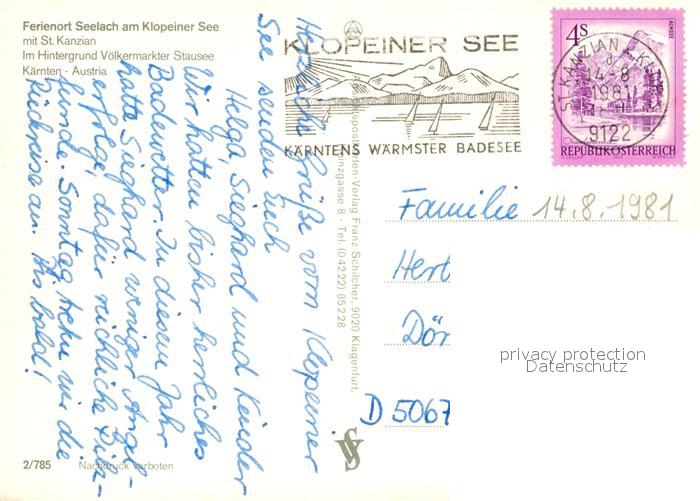 Ferienort Seelach am Klopeiner See
mit St. Kanzian
Im Hintergrund Völkermarkter Stausee
Kärnten - Austria
Herzliche Grüße vom Klopeiner
See senden Euch
Helga, Sieghard und Kinder
Wir hatten bisher herrliches
Badewetter. In diesem Jahr
hatte Sieghard weniger Angel-
erfolg, dafür reichliche Pilz-
funde. Sonntag treten wir die
Rückreise an. Bis bald!
2/785
Nachdruck verboten
KLOPEINER SEE
KÄRNTENS WÄRMSTER BADESEE
Verlag Franz Schilcher, 9020 Klagenfurt,
gasse 8 · Tel. (04222) 85228
4S
ALMSEE
REPUBLIK ÖSTERREICH
ST. KANZIAN
14-8
1981
9122
Familie 14.8.1981
Herb
Dör
D 5067
privacy protection
Datenschutz